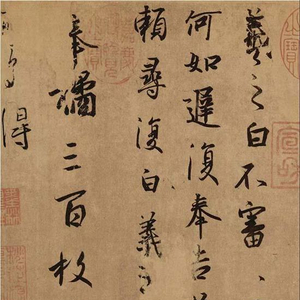 羲之白不審
何如遲復奉告
賴尋復白羲之
奉橘三百枚
得